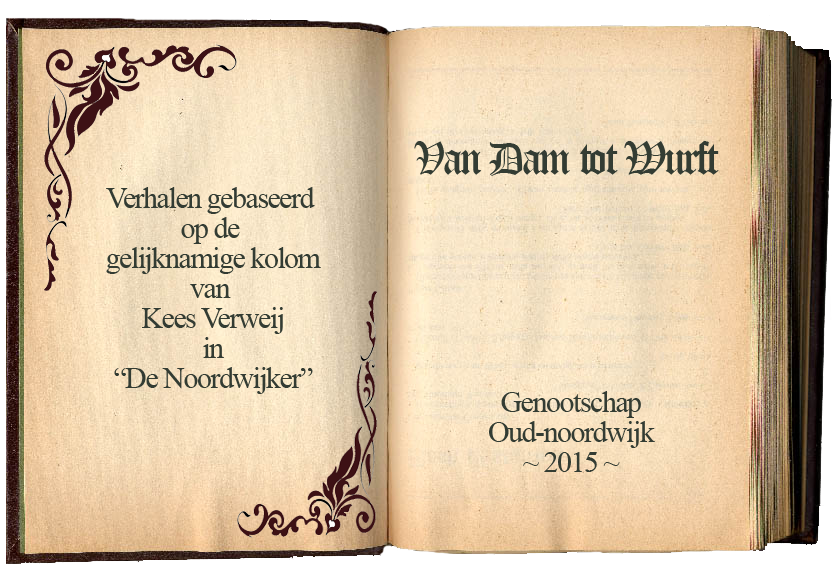 Verhalen gebaseerd
op de
gelijknamige kolom
van
Kees Verweij
in
“De Noordwijker”
Van Dam tot Wurft
Genootschap
Oud-noordwijk
~ 2015 ~